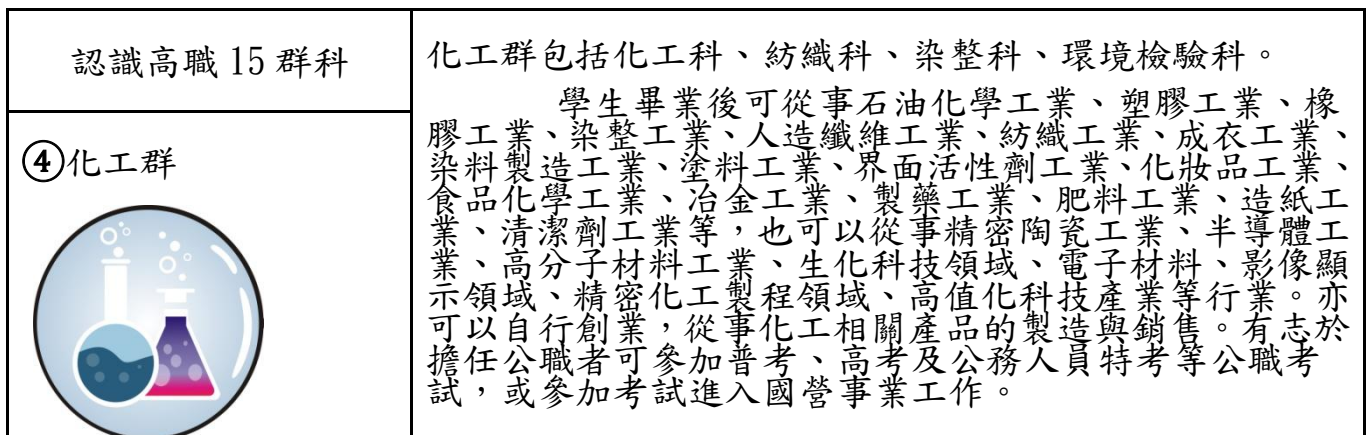 認識高職 15 群科
④化工群
化工群包括化工科、紡織科、染整科、環境檢驗科。
學生畢業後可從事石油化學工業、塑膠工業、橡
膠工業、染整工業、人造纖維工業、紡織工業、成衣工業、
染料製造工業、塗料工業、界面活性劑工業、化妝品工業、
食品化學工業、冶金工業、製藥工業、肥料工業、造紙工
業、清潔劑工業等，也可以從事精密陶瓷工業、半導體工
業、高分子材料工業、生化科技領域、電子材料、影像顯
示領域、精密化工製程領域、高值化科技產業等行業。亦
可以自行創業，從事化工相關產品的製造與銷售。有志於
擔任公職者可參加普考、高考及公務人員特考等公職考
試，或參加考試進入國營事業工作。